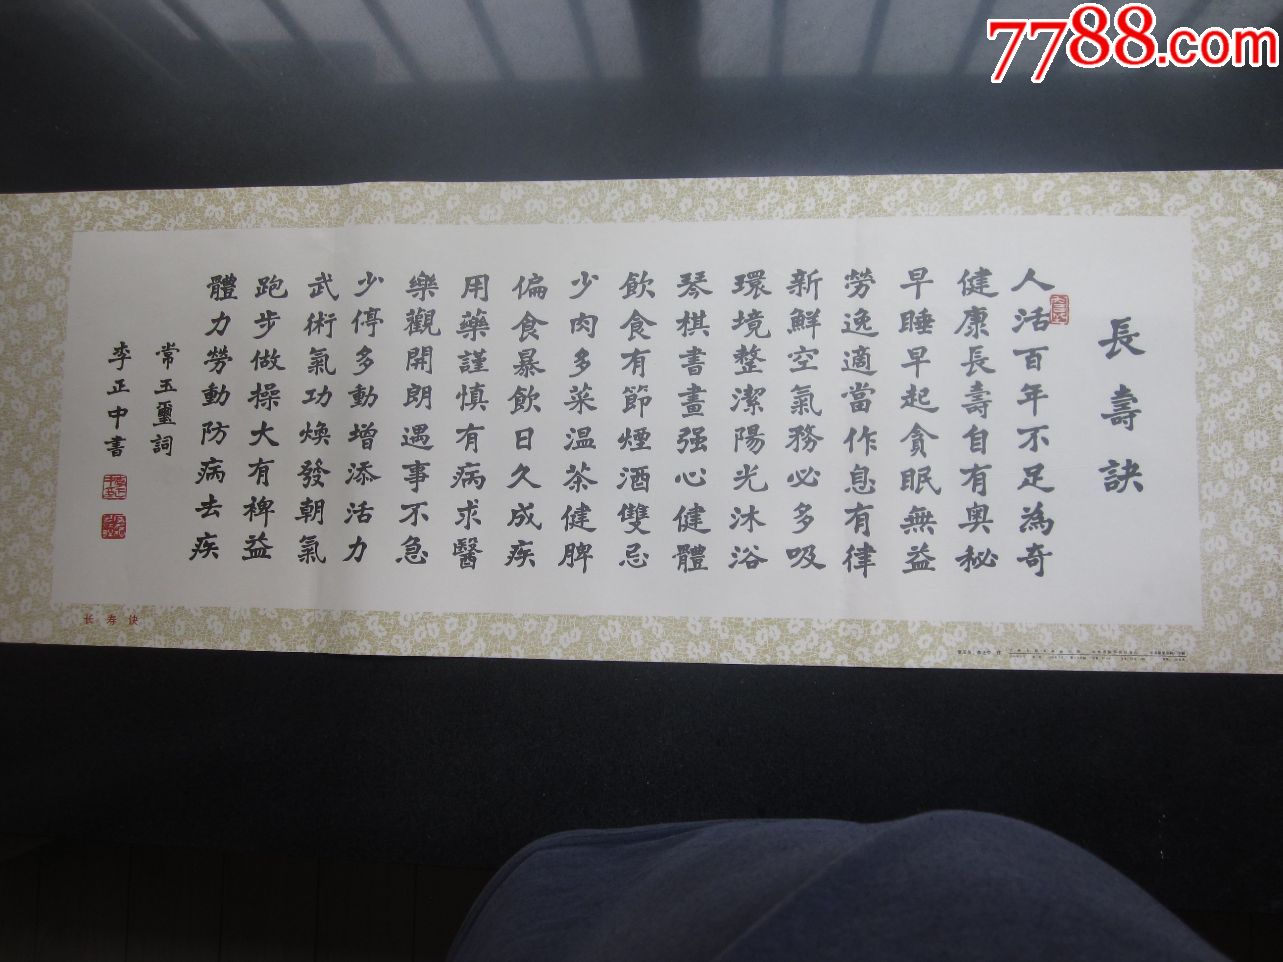 7788.com
長壽訣
人活百年不足為奇
健康長壽自有奥秘
早睡早起貪眠無益
勞逸適當作息有律
新鮮空氣務必多吸
環境整潔陽光沐浴
琴棋書畫强心健體
飲食有節煙酒雙忌
少肉多菜温茶健脾
偏食暴飲日久成疾
用藥謹慎有病求醫
樂觀開朗遇事不急
少停多動增添活力
武術氣功焕發朝氣
跑步做操大有裨益
體力勞動防病去疾
常玉璽詞
李正中書
长寿诀